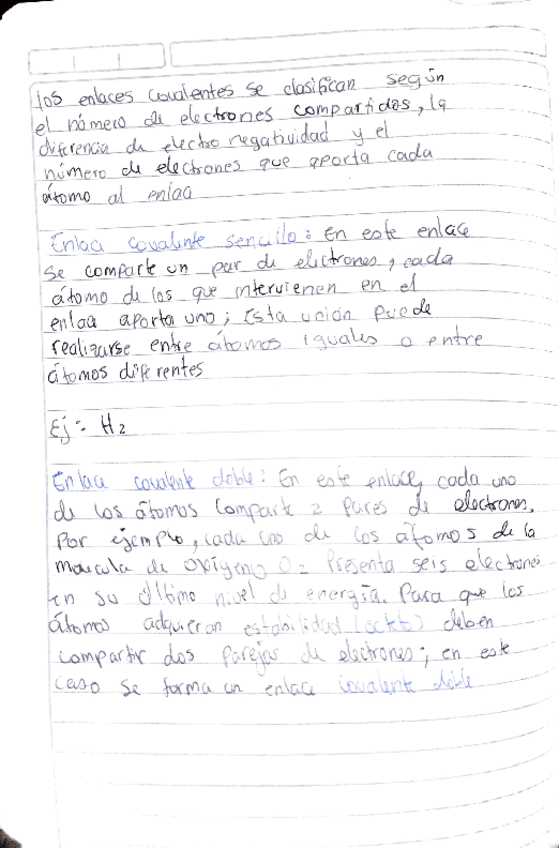 los enlaces covalentes se clasifican según
el número de electrones compartidos, la
diferencia de electro negatividad y el
número de electrones que aporta cada
átomo al enlace
Enlace covalente sencillo: En este enlace
se comparte un par de electrones, cada
átomo de los que intervienen en el
enlace aporta uno; Esta unión puede
realizarse entre átomos iguales o entre
átomos diferentes
Ej: H2
Enlace covalente doble: En este enlace, cada uno
de los átomos comparte 2 pares de electrones.
Por ejemplo, cada uno de los átomos de la
molécula de oxígeno O2 Presenta seis electrones
en su último nivel de energía. Para que los
átomos adquieran estabilidad (octeto) deben
compartir dos parejas de electrones; en este
caso se forma un enlace covalente doble